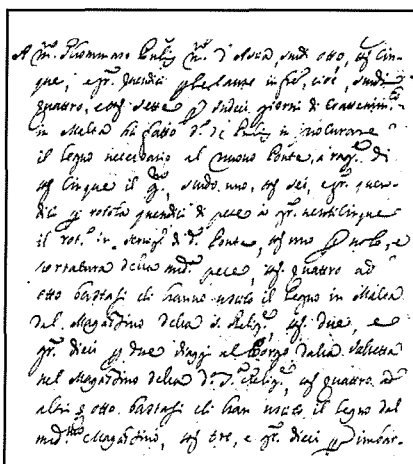 A Mro. Thommaso Pulis Mro. d'Ascia, scudi otto, tari cin-
que, e gr. quendici per le
quattro, e tari sette per sudeci giorni di
in Malta hà fatto do. de Pulis in procurare
il legno necessario al nuovo Ponte, à ragne. di
tari cinque il gno., scudo uno, tari sei, e gr. quen-
dici per rotola quendici di pece à gr. venticinque
il roto. in servigo. di do. Ponte, tari uno per nolo, e
della meda. pece, tari quattro ad
otto bastasi ch hanno uscito il legno in Malta
dal Magazino della S. Religne., tari due, e
gr. dieci per due viaggi al Borgo dalla Valletta
nel Magazino della da. Sa. Religne., tari quattro ad
altri otto bastasi ch han uscito il legno dal
medmo Magazino, tari tre, e gr. dieci per imbar-